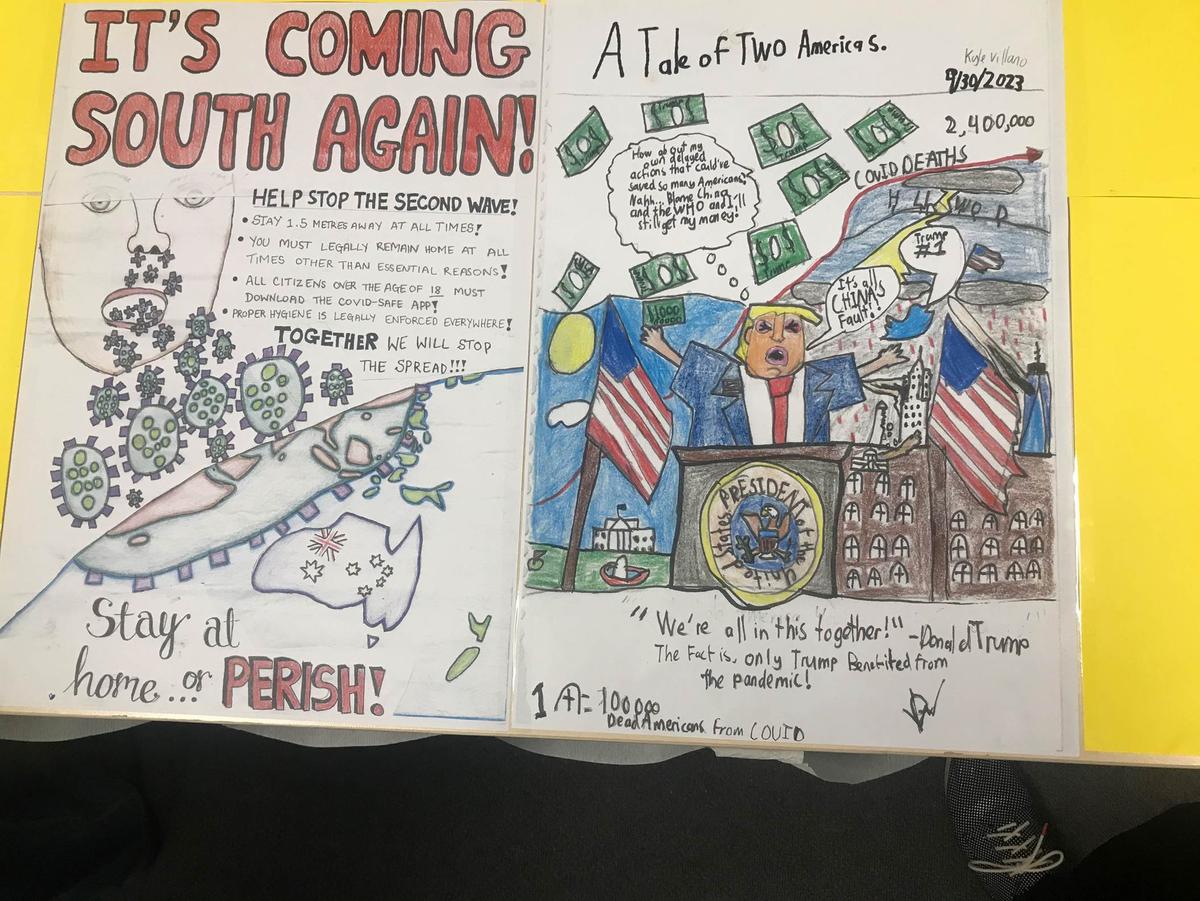 IT'S COMING
SOUTH AGAIN!
HELP STOP THE SECOND WAVE!
• STAY 1.5 METRES AWAY AT ALL TIMES!
• YOU MUST LEGALLY REMAIN HOME AT ALL
TIMES OTHER THAN ESSENTIAL REASONS!
• ALL CITIZENS OVER THE AGE OF 18 MUST
DOWNLOAD THE COVID-SAFE APP!
• PROPER HYGIENE IS LEGALLY ENFORCED EVERYWHERE!
TOGETHER WE WILL STOP
THE SPREAD!!!
Stay at
home... or PERISH!
A Tale of Two Americas.
Kyle Villano
9/30/2023
2,400,000
COVID DEATHS
Trump
Trump
Trump
How about my
own delayed
actions that could've
saved so many Americans?
Nahh... Blame China
and the WHO and I'll
still get my money!
Trump
#1
It's all
CHINA's
Fault!
PRESIDENT of the United States
"We're all in this together!" -Donald Trump
The Fact is, only Trump Benefited from
the pandemic!
= 100000
Dead Americans From COVID